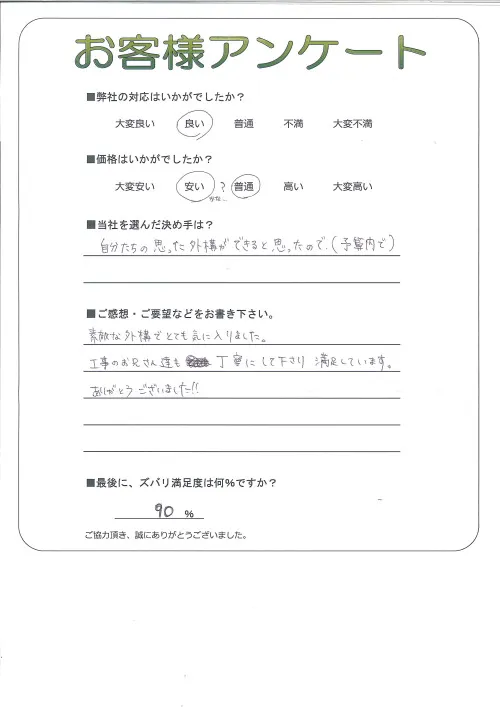 お客様アンケート
■弊社の対応はいかがでしたか？
大変良い 良い 普通 不満 大変不満
■価格はいかがでしたか？
大変安い 安い ? 普通 高い 大変高い
かな…
■当社を選んだ決め手は？
自分たちの思った外構ができると思ったので.(予算内で)
■ご感想・ご要望などをお書き下さい。
素敵な外構でとても気に入りました。
工事のお兄さん達も 丁寧にして下さり 満足しています。
ありがとうございました!!
■最後に、ズバリ満足度は何％ですか？
90 ％
ご協力頂き、誠にありがとうございました。